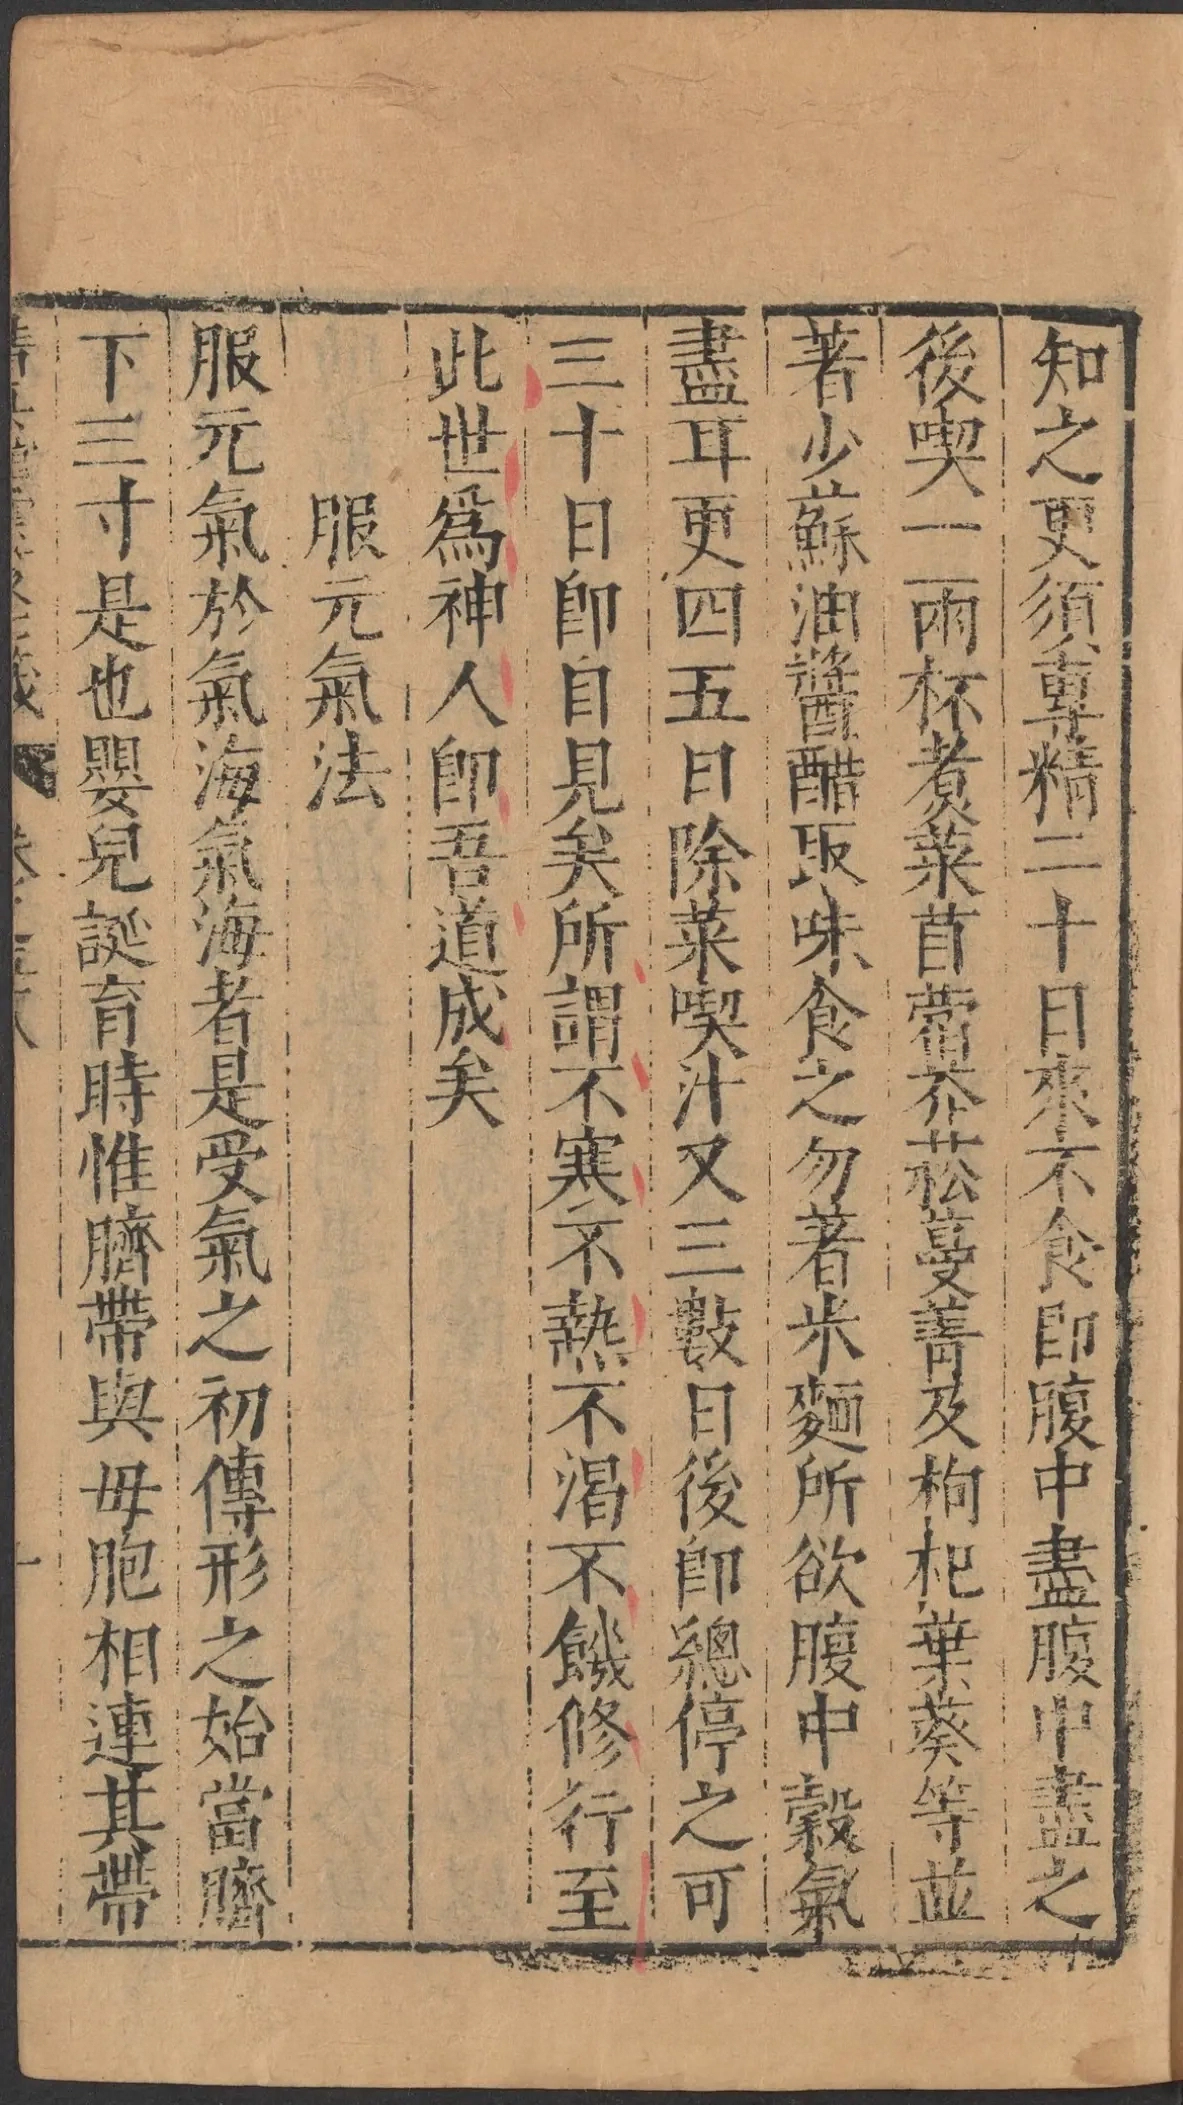 知之更須專精二十日來不食即腹中盡腹中盡之
後喫一兩杯煮菜苜藋芥菘蔓菁及枸杞葉葵等並
著少蘇油醬醋取味食之勿著米麵所欲腹中穀氣
盡耳更四五日除菜喫汁又三數日後即總停之可
三十日即自見矣所謂不寒不熱不渴不饑修行至
此世爲神人即吾道成矣
服元氣法
服元氣於氣海氣海者是受氣之初傳形之始當臍
下三寸是也嬰兒誕育時惟臍帶與母胞相連其帶